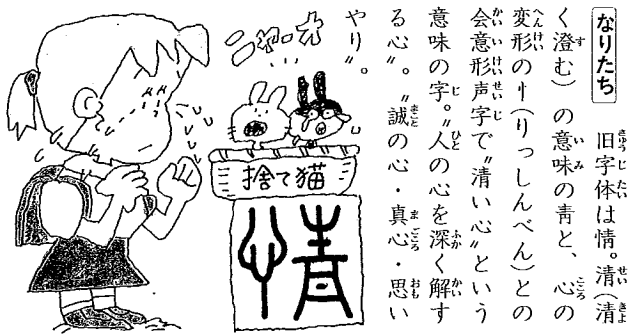 なりたち
旧字体は情。清（清
く澄む）の意味の青と、心の
変形の忄（りっしんべん）との
会意形声字で〝清い心〟という
意味の字。〝人の心を深く解す
る心〟。〝誠の心・真心・思い
やり〟。
ニャーオ
捨て猫
情